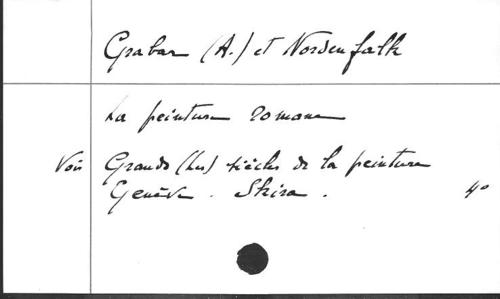 Grabar (A.) et Nordenfalk
La peinture romane
Voir Grands (Les) siècles de la peinture
Genève. Skira. 4°